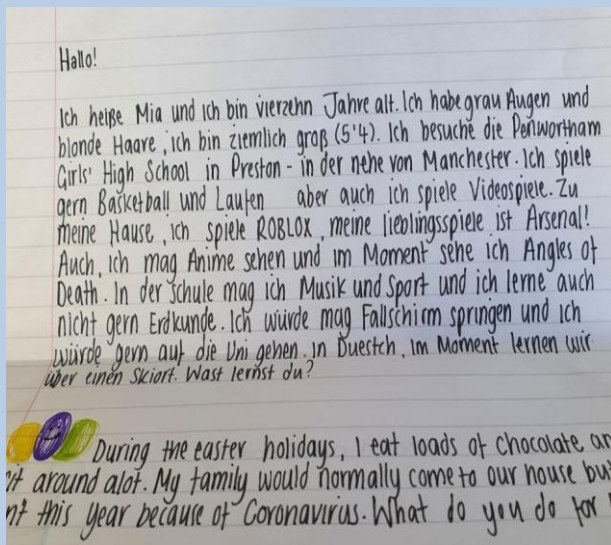 Hallo!
Ich heiße Mia und ich bin vierzehn Jahre alt. Ich habe grau Augen und
blonde Haare, ich bin ziemlich groß (5'4). Ich besuche die Penwortham
Girls' High School in Preston - in der nehe von Manchester. Ich spiele
gern Basketball und Laufen aber auch ich spiele Videospiele. Zu
meine Hause, ich spiele ROBLOX, meine lieblingsspiele ist Arsenal!
Auch, ich mag Anime sehen und im Moment sehe ich Angles of
Death. In der Schule mag ich Musik und Sport und ich lerne auch
nicht gern Erdkunde. Ich würde mag Fallschirm springen und ich
würde gern auf die Uni gehen. In Duestch, im Moment lernen wir
über einen Skiort. Wast lernst du?
During the easter holidays, I eat loads of chocolate an
sit around alot. My family would normally come to our house but
nt this year because of Coronavirus. What do you do for